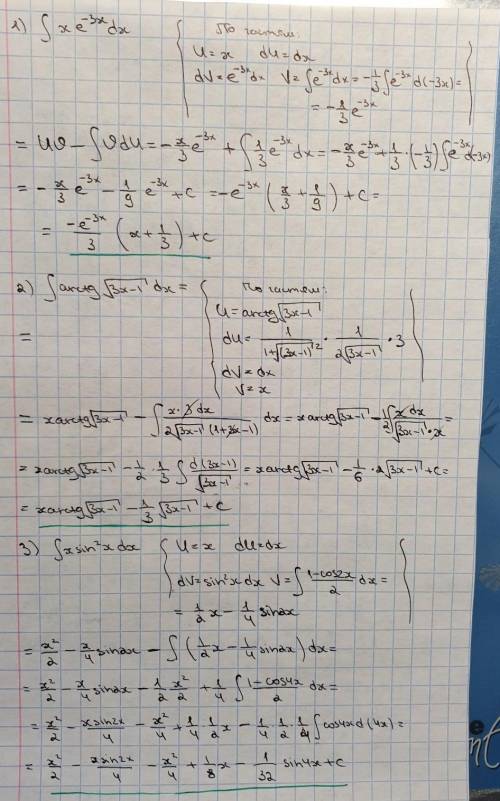 1) ∫ x e^{-3x} dx
По частям:
U = x   dU = dx
dV = e^{-3x} dx   V = ∫e^{-3x} dx = -1/3 ∫e^{-3x} d(-3x) =
= -1/3 e^{-3x}
= UV - ∫VdU = -x/3 e^{-3x} + ∫ 1/3 e^{-3x} dx = -x/3 e^{-3x} + 1/3 · (-1/3) ∫e^{-3x} d(-3x)
= -x/3 e^{-3x} - 1/9 e^{-3x} + C = -e^{-3x} (x/3 + 1/9) + C =
= -e^{-3x}/3 (x + 1/3) + C
2) ∫ arctg √(3x-1) dx =
По частям:
U = arctg √(3x-1)
=
dU = 1/(1+√(3x-1)^2) · 1/(2√(3x-1)) · 3
dV = dx
V = x
= x arctg √(3x-1) - ∫ x·3 dx/(2√(3x-1) (1+3x-1)) dx = x arctg √(3x-1) - 1/2 ∫ x dx/(√(3x-1)·x) =
= x arctg √(3x-1) - 1/2 · 1/3 ∫ d(3x-1)/√(3x-1) = x arctg √(3x-1) - 1/6 · 2√(3x-1) + C =
= x arctg √(3x-1) - 1/3 √(3x-1) + C
3) ∫ x sin²x dx
U = x   dU = dx
dV = sin²x dx   V = ∫ (1-cos2x)/2 dx =
= 1/2 x - 1/4 sin2x
= x²/2 - x/4 sin2x - ∫ (1/2 x - 1/4 sin2x) dx =
= x²/2 - x/4 sin2x - 1/2 x²/2 + 1/4 ∫ (1-cos4x)/2 dx =
= x²/2 - x sin2x/4 - x²/4 + 1/4 · 1/2 x - 1/4 · 1/2 · 1/4 ∫ cos4x d(4x) =
= x²/2 - x sin2x/4 - x²/4 + 1/8 x - 1/32 sin4x + C